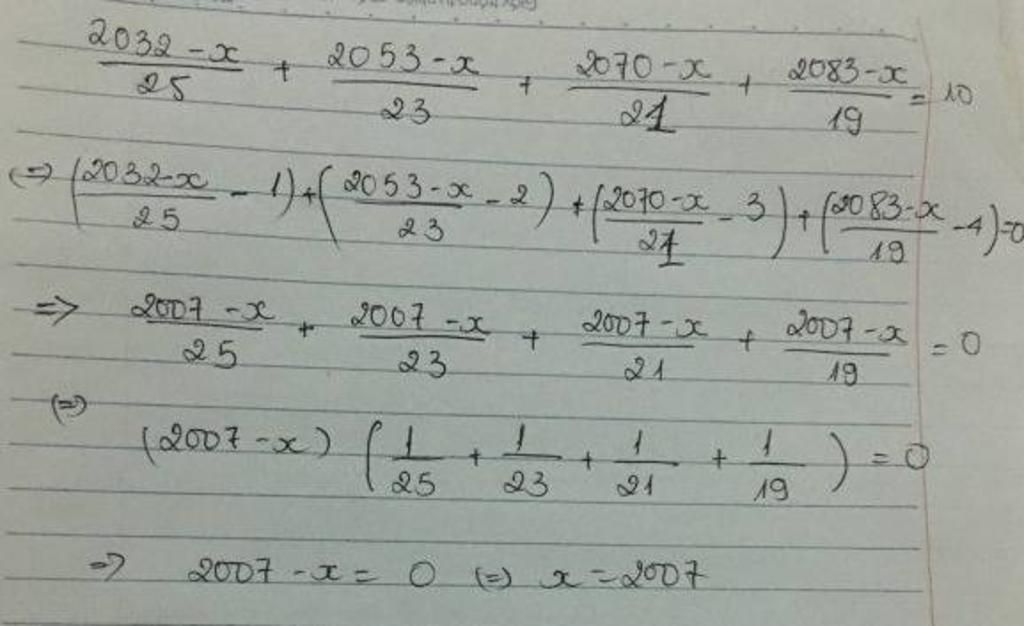 (2032 - x)/25 + (2053 - x)/23 + (2070 - x)/21 + (2083 - x)/19 = 10
(=> ((2032-x)/25 - 1) + ((2053-x)/23 - 2) + ((2070-x)/21 - 3) + ((2083-x)/19 - 4) = 0
=> (2007 - x)/25 + (2007 - x)/23 + (2007 - x)/21 + (2007 - x)/19 = 0
(=)
(2007 - x) (1/25 + 1/23 + 1/21 + 1/19) = 0
=> 2007 - x = 0 (=) x = 2007